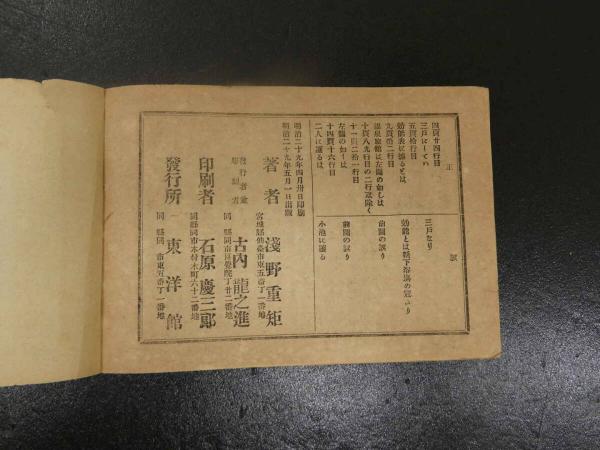 正
誤
四頁廿四行目
三戸にしての
三戸なり
五頁拾行目
効能表に據るとは
効能とは轎下浴湯の寃より
九頁第二行目
溫泉旅館は左圖の如しは
前圖の誤り
十頁八九行目の二行は除く
十一頁二拾一行目
左圖の如しは
前圖の誤り
十四頁十六行目
二人に還るは
小池に還る
明治二十九年四月卅日印刷
明治二十九年五月一日出版
著者
宮城縣仙臺市東五番丁一番地
淺野重矩
發行者兼
同縣同市良覺院丁廿二番地
古內龍之進
印刷者
同縣同市本材木町六十二番地
石原慶三郎
發行所
同縣同市東五番丁一番地
東洋館